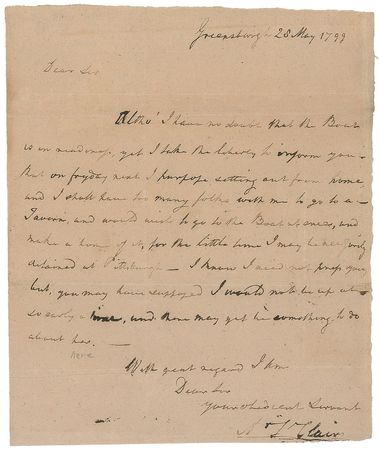 Greensburgh 28 May 1799
Dear Sir
Altho' I have no doubt that the Boat
is in readiness, yet I take the liberty to inform you
that on fryday next I purpose setting out from home
and I shall have too many folks with me to go to a
Tavern, and would wish to go to the Boat at once, and
make a home of it, for the little time I may be
detained at Pittsburgh — I know I need not press you
but, you may have supposed I would not be up at
so early a time, and there may yet be something to do
about her. —
here
With great regard I am
Dear Sir
your obedient Servant
Ar St Clair